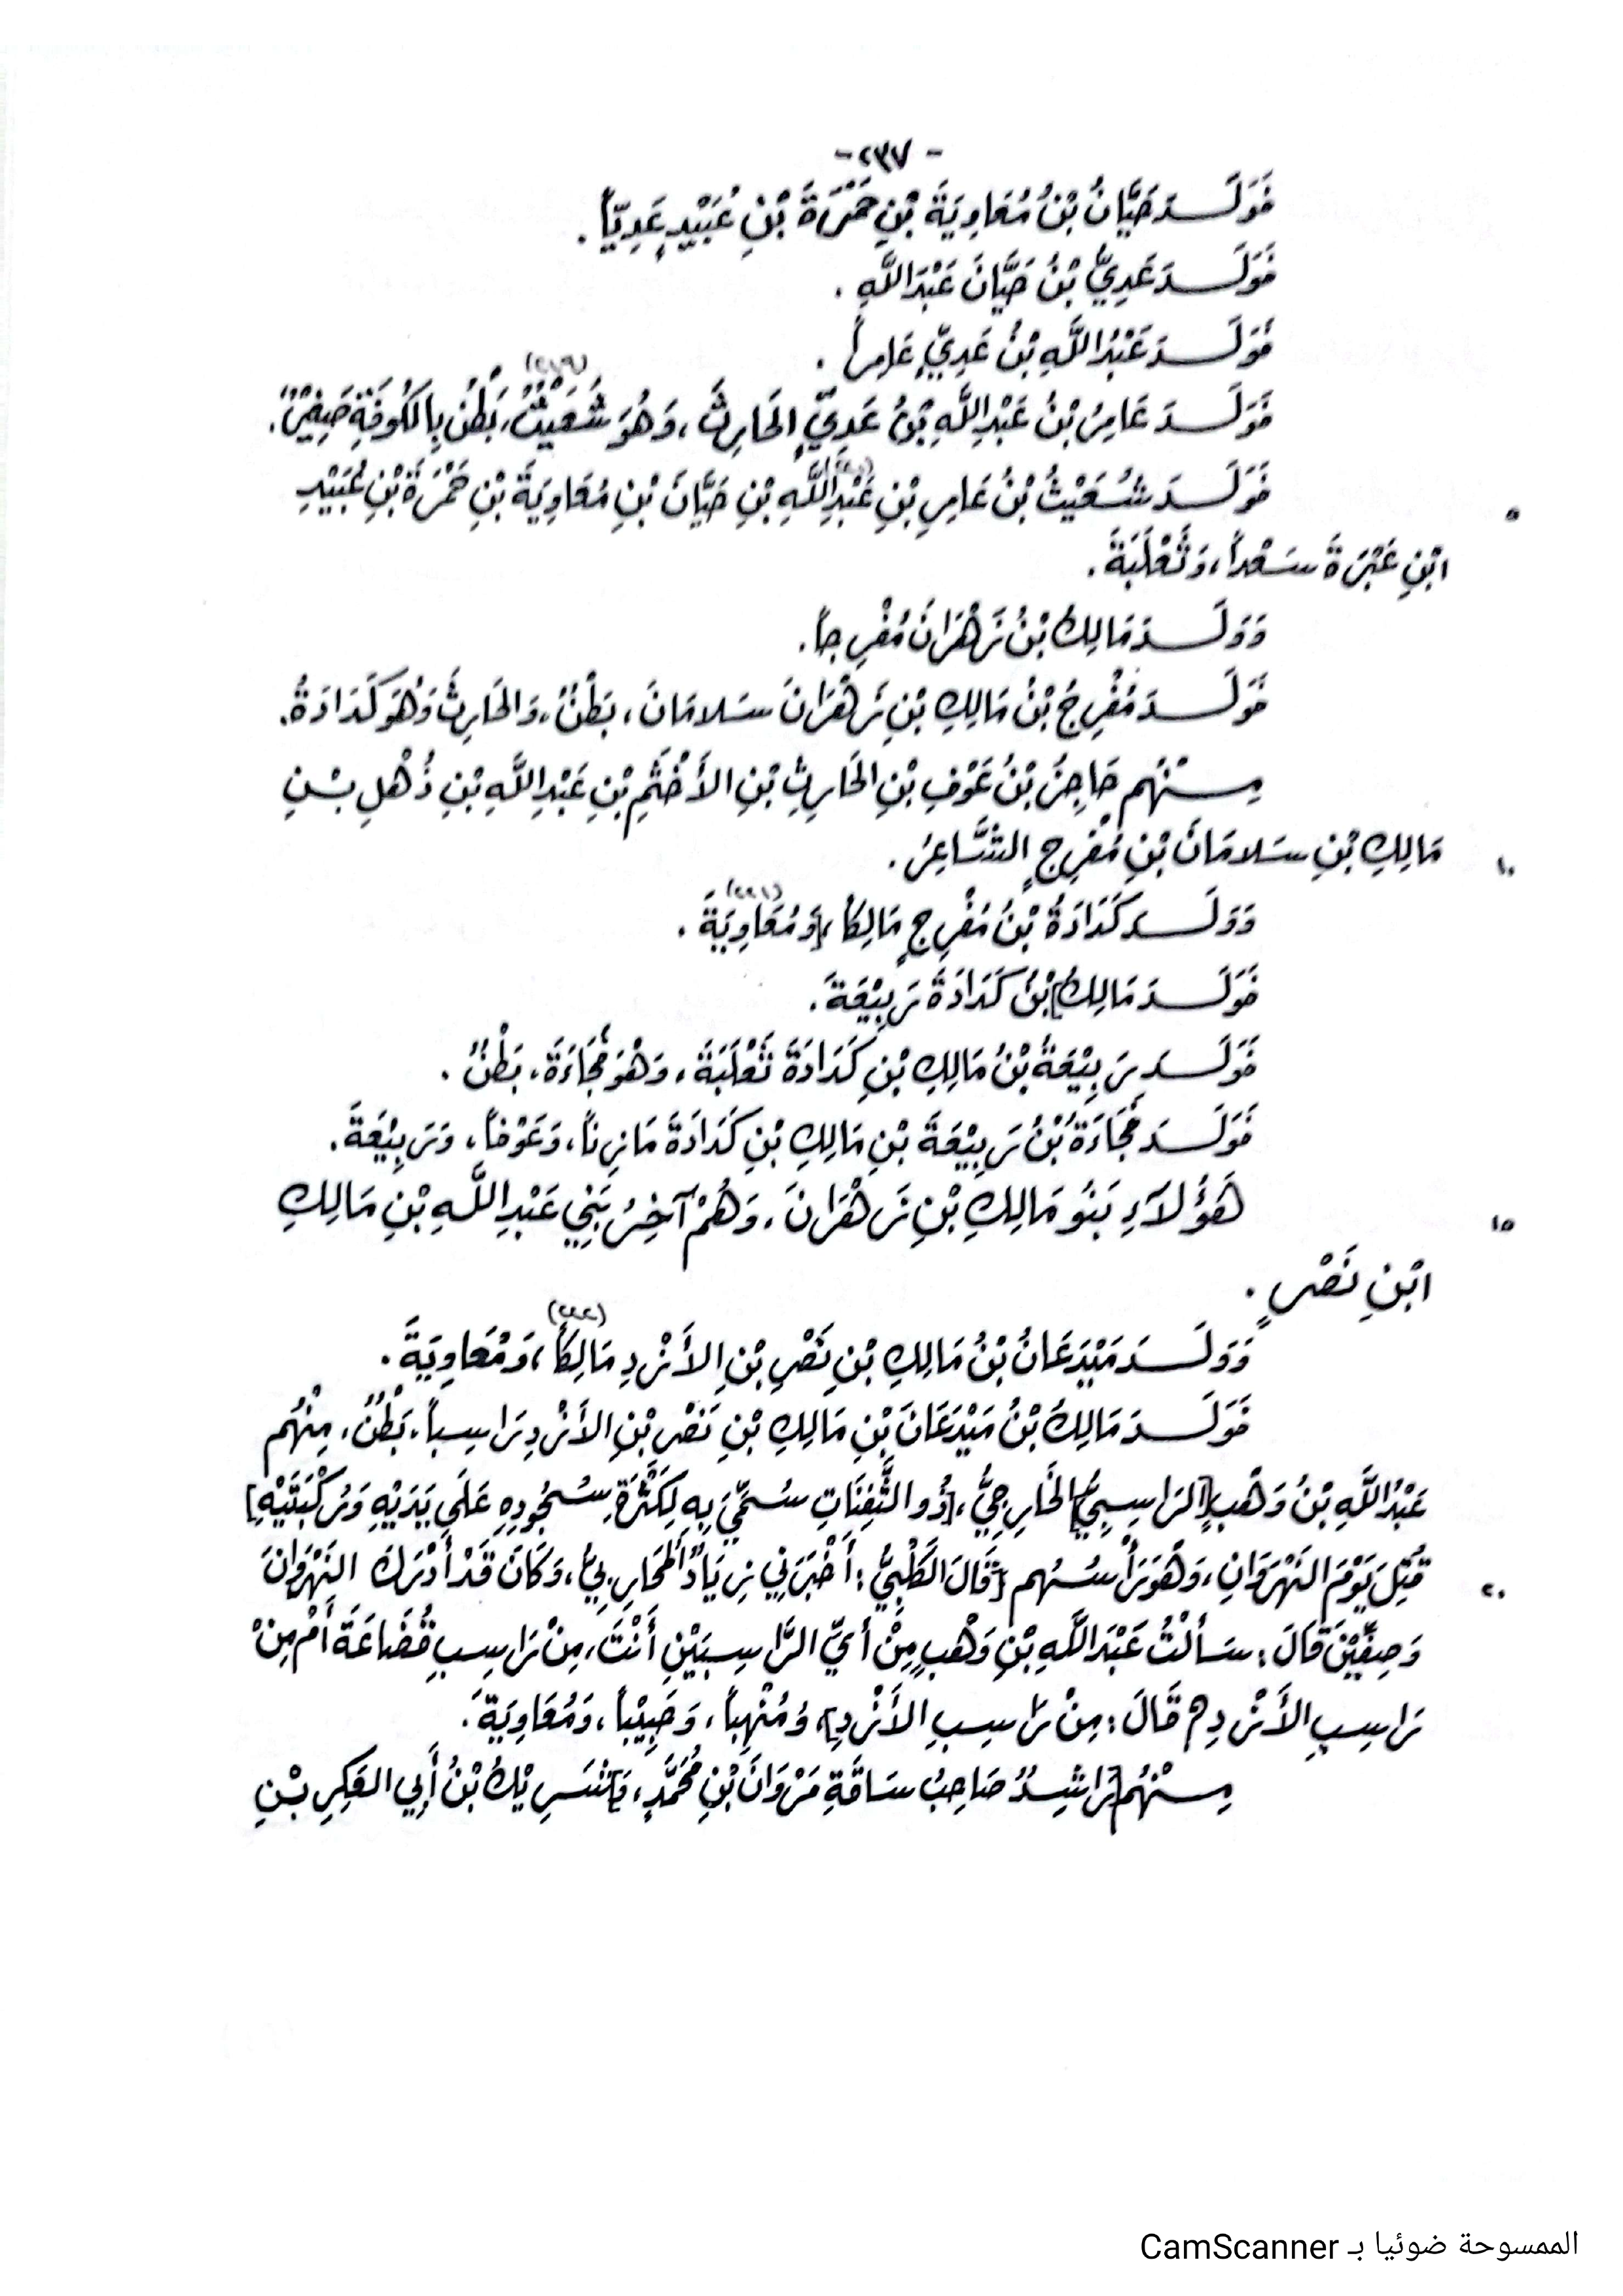 - ٢٣٧ -
فَوَلَدَ حَيَّانُ بْنُ مُعَاوِيَةَ بْنِ حَمْرَةَ بْنِ عُبَيْدٍ عَدِيّاً .
فَوَلَدَ عَدِيُّ بْنُ حَيَّانَ عَبْدَ اللَّهِ .
فَوَلَدَ عَبْدُ اللَّهِ بْنُ عَدِيٍّ عَامِراً .
فَوَلَدَ عَامِرُ بْنُ عَبْدِ اللَّهِ بْنِ عَدِيٍّ الحَارِثَ ، وَهُوَ شُعَيْثٌ ، بَطْنٌ بِالكُوفَةِ صَغِيْرٌ .
٥ فَوَلَدَ شُعَيْثُ بْنُ عَامِرِ بْنِ عَبْدِ اللَّهِ بْنِ حَيَّانَ بْنِ مُعَاوِيَةَ بْنِ حَمْرَةَ بْنِ عُبَيْدِ
ابْنِ عَبْرَةَ سَعْداً ، وَثَعْلَبَةَ .
وَوَلَدَ مَالِكُ بْنُ زَهْرَانَ مُفْرِجاً .
فَوَلَدَ مُفْرِجُ بْنُ مَالِكِ بْنِ زَهْرَانَ سَلامَانَ ، بَطْنٌ ، وَالحَارِثَ وَهُوَ كَدَادَةُ .
مِنْهُم حَاجِزُ بْنُ عَوْفِ بْنِ الحَارِثِ بْنِ الأَخْثَمِ بْنِ عَبْدِ اللَّهِ بْنِ ذُهْلِ بْنِ
١٠ مَالِكِ بْنِ سَلامَانَ بْنِ مُفْرِجٍ الشَّاعِرُ .
وَوَلَدَ كَدَادَةُ بْنُ مُفْرِجٍ مَالِكاً ، [وَمُعَاوِيَةَ . (٢٤١)
فَوَلَدَ مَالِكُ] بْنُ كَدَادَةَ رَبِيْعَةَ .
فَوَلَدَ رَبِيْعَةُ بْنُ مَالِكِ بْنِ كَدَادَةَ ثَعْلَبَةَ ، وَهْوَ مُجَاءَةُ ، بَطْنٌ .
فَوَلَدَ مُجَاءَةُ بْنُ رَبِيْعَةَ بْنِ مَالِكِ بْنِ كَدَادَةَ مَازِناً ، وَعَوْفاً ، وَرَبِيْعَةَ .
١٥ هَؤُلآءِ بَنُو مَالِكِ بْنِ زَهْرَانَ ، وَهُمْ آخِرُ بَنِي عَبْدِ اللَّهِ بْنِ مَالِكِ
ابْنِ نَصْرٍ .
وَوَلَدَ مَيْدَعَانُ بْنُ مَالِكِ بْنِ نَصْرِ بْنِ الأَزْدِ مَالِكاً ، وَمُعَاوِيَةَ . (٢٤٢)
فَوَلَدَ مَالِكُ بْنُ مَيْدَعَانَ بْنِ مَالِكِ بْنِ نَصْرِ بْنِ الأَزْدِ رَاسِباً ، بَطْنٌ ، مِنْهُم
عَبْدُ اللَّهِ بْنُ وَهْبٍ [الرَاسِبِيُّ] الخَارِجِيُّ ، [ذُو الثَّفِنَاتِ سُمِّيَ بِهِ لِكَثْرَةِ سُجُودِهِ عَلَى يَدَيْهِ وَرُكْبَتَيْهِ]
٢٠ قُتِلَ يَوْمَ النَهْرَوَانِ ، وَهْوَ رَأْسُهُم [قَالَ الكَلْبِيُّ : أَخْبَرَنِي زِيَادٌ المُحَارِبِيُّ ، وَكَانَ قَدْ أَدْرَكَ النَهْرَوَانَ
وَصِفِّيْنَ قَالَ : سَأَلْتُ عَبْدَ اللَّهِ بْنَ وَهْبٍ مِنْ أَيِّ الرَّاسِبَيْنِ أَنْتَ ، مِنْ رَاسِبِ قُضَاعَةَ أَمْ مِنْ
رَاسِبِ الأَزْدِ ؟ قَالَ : مِنْ رَاسِبِ الأَزْدِ] ، وَمُنْهِباً ، وَحَبِيْباً ، وَمُعَاوِيَةَ .
مِنْهُم [رَاشِدٌ صَاحِبُ سَاقَةِ مَرْوَانَ بْنِ مُحَمَّدٍ ، وَ] شَرِيْكُ بْنُ أَبِي العَكِرِ بْنِ
الممسوحة ضوئيا بـ CamScanner